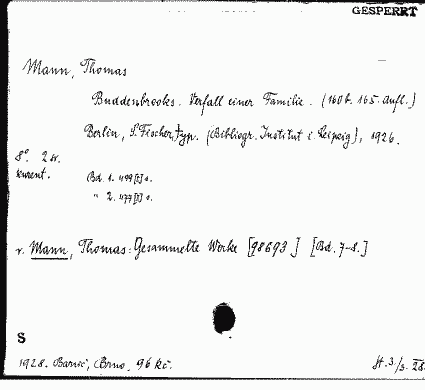 GESPERRT
Mann, Thomas
Buddenbrooks. Verfall einer Familie. (160 b. 165. Aufl.)
Berlin, S. Fischer, typ. (Bibliogr. Institut i. Leipzig), 1926.
8°. 2 sv.
kurent.
Bd. 1. 499 s.
" 2. 477 s.
v. Mann, Thomas: Gesammelte Werke [98693] [Bd. 7-8.]
S
1928. Barvič, Brno, 96 Kč.
3./3. 28